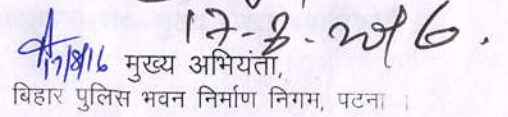 17-8-2016.
17/8/16 मुख्य अभियंता,
बिहार पुलिस भवन निर्माण निगम, पटना ।